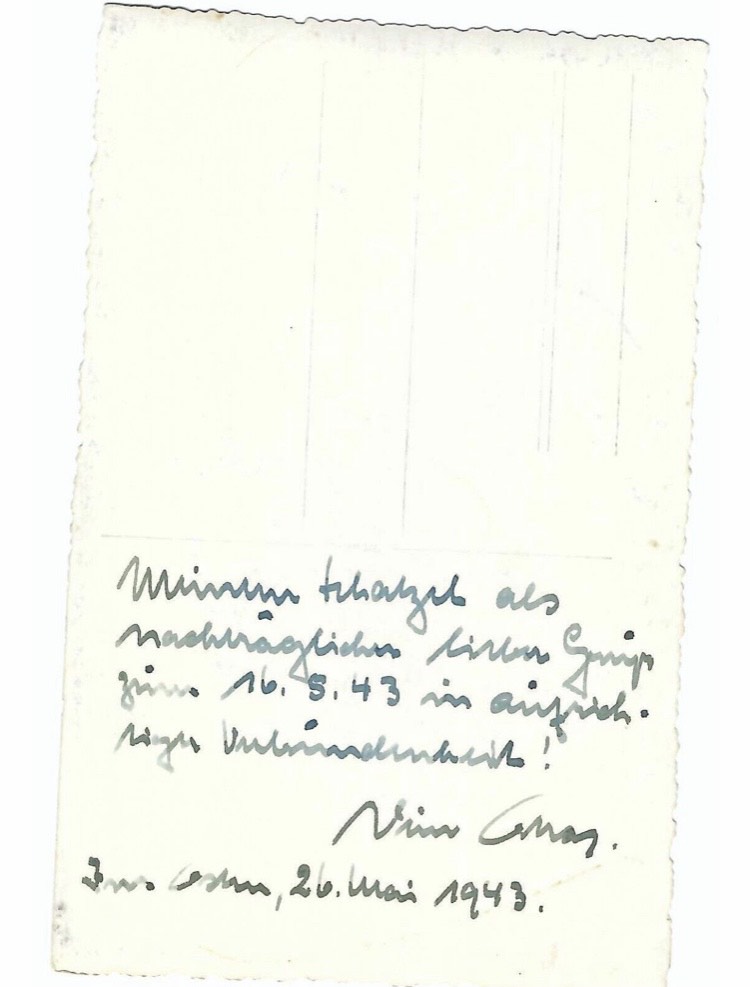 Meinem Schatzel als
nachträglicher lieber Gruß
zum 16. 5. 43 in aufrich-
tiger Verbundenheit!
Dein
Im Osten, 26. Mai 1943.